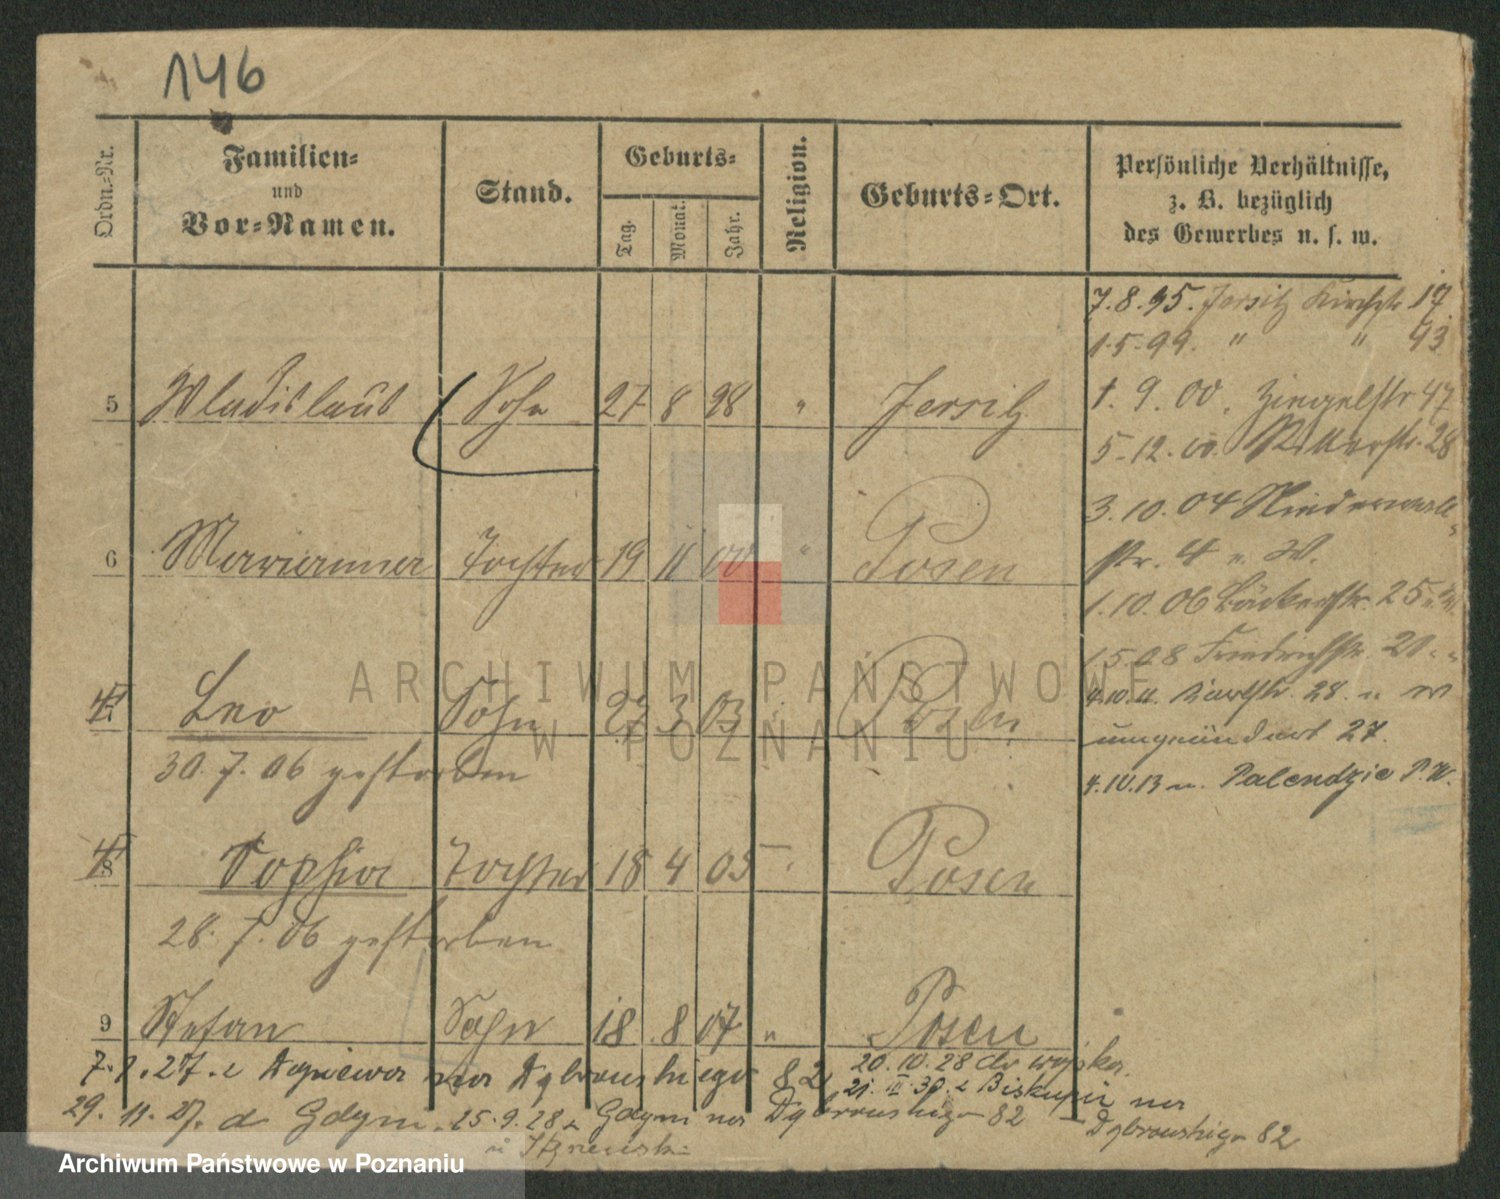 146
Ordn.-Nr.
Familien-
und
Vor-Namen.
Stand.
Geburts-
Tag.
Monat.
Jahr.
Religion.
Geburts-Ort.
Persönliche Verhältnisse,
z. B. bezüglich
des Gewerbes u. s. w.
7.8.95. Jersitz Kirchstr. 17
1.5.99. " " 43
5 Wladislaus Sohn 27 8 98 " Jersitz
1.9.00. Ziegelstr 47
5.12.00. Ritterstr. 28
3.10.04 Niederwall-
6 Marianna Tochter 19 11 00 " Posen
str. 4 u. W.
1.10.06 Bäckerstr. 25
1.5.08 Friedrichstr. 20
7 Leo Sohn 3 03 Posen
4.10.11. 28. u
27.
30.7.06 gestorben
4.10.13 n. Palendzie P.W.
8 Sophia Tochter 18 4 05 Posen
28.7.06 gestorben
9 Stefan Sohn 18 8 07 " Posen
27. z Dopiewa na Dąbrowskiego 82
20.10.28 do wojska.
21. II. 30. z Biskupic na
Dąbrowskiego 82
29. 11. 27. do Gdyni. 25.9.28 z Gdyni na Dąbrowskiego 82
ARCHIWUM PAŃSTWOWE
W POZNANIU
Archiwum Państwowe w Poznaniu